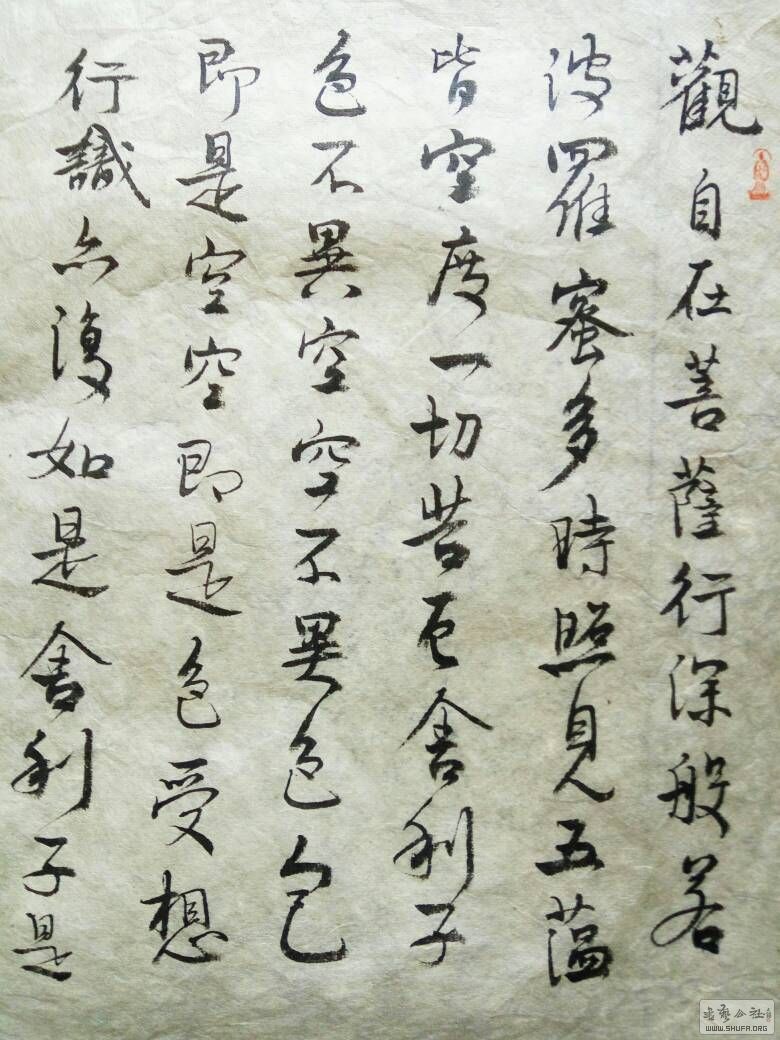 觀自在菩薩行深般若
波羅蜜多時照見五蘊
皆空度一切苦厄舍利子
色不異空空不異色色
即是空空即是色受想
行識亦復如是舍利子是
WWW.SHUFA.ORG